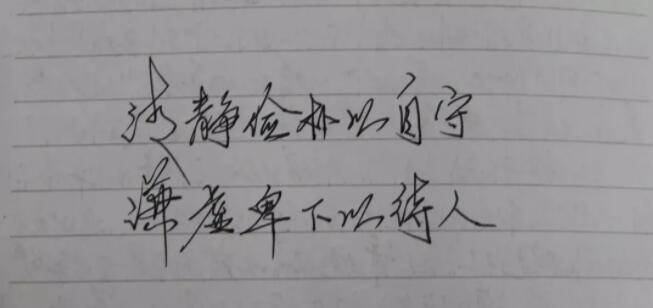 清静俭朴以自守
谦虚卑下以待人